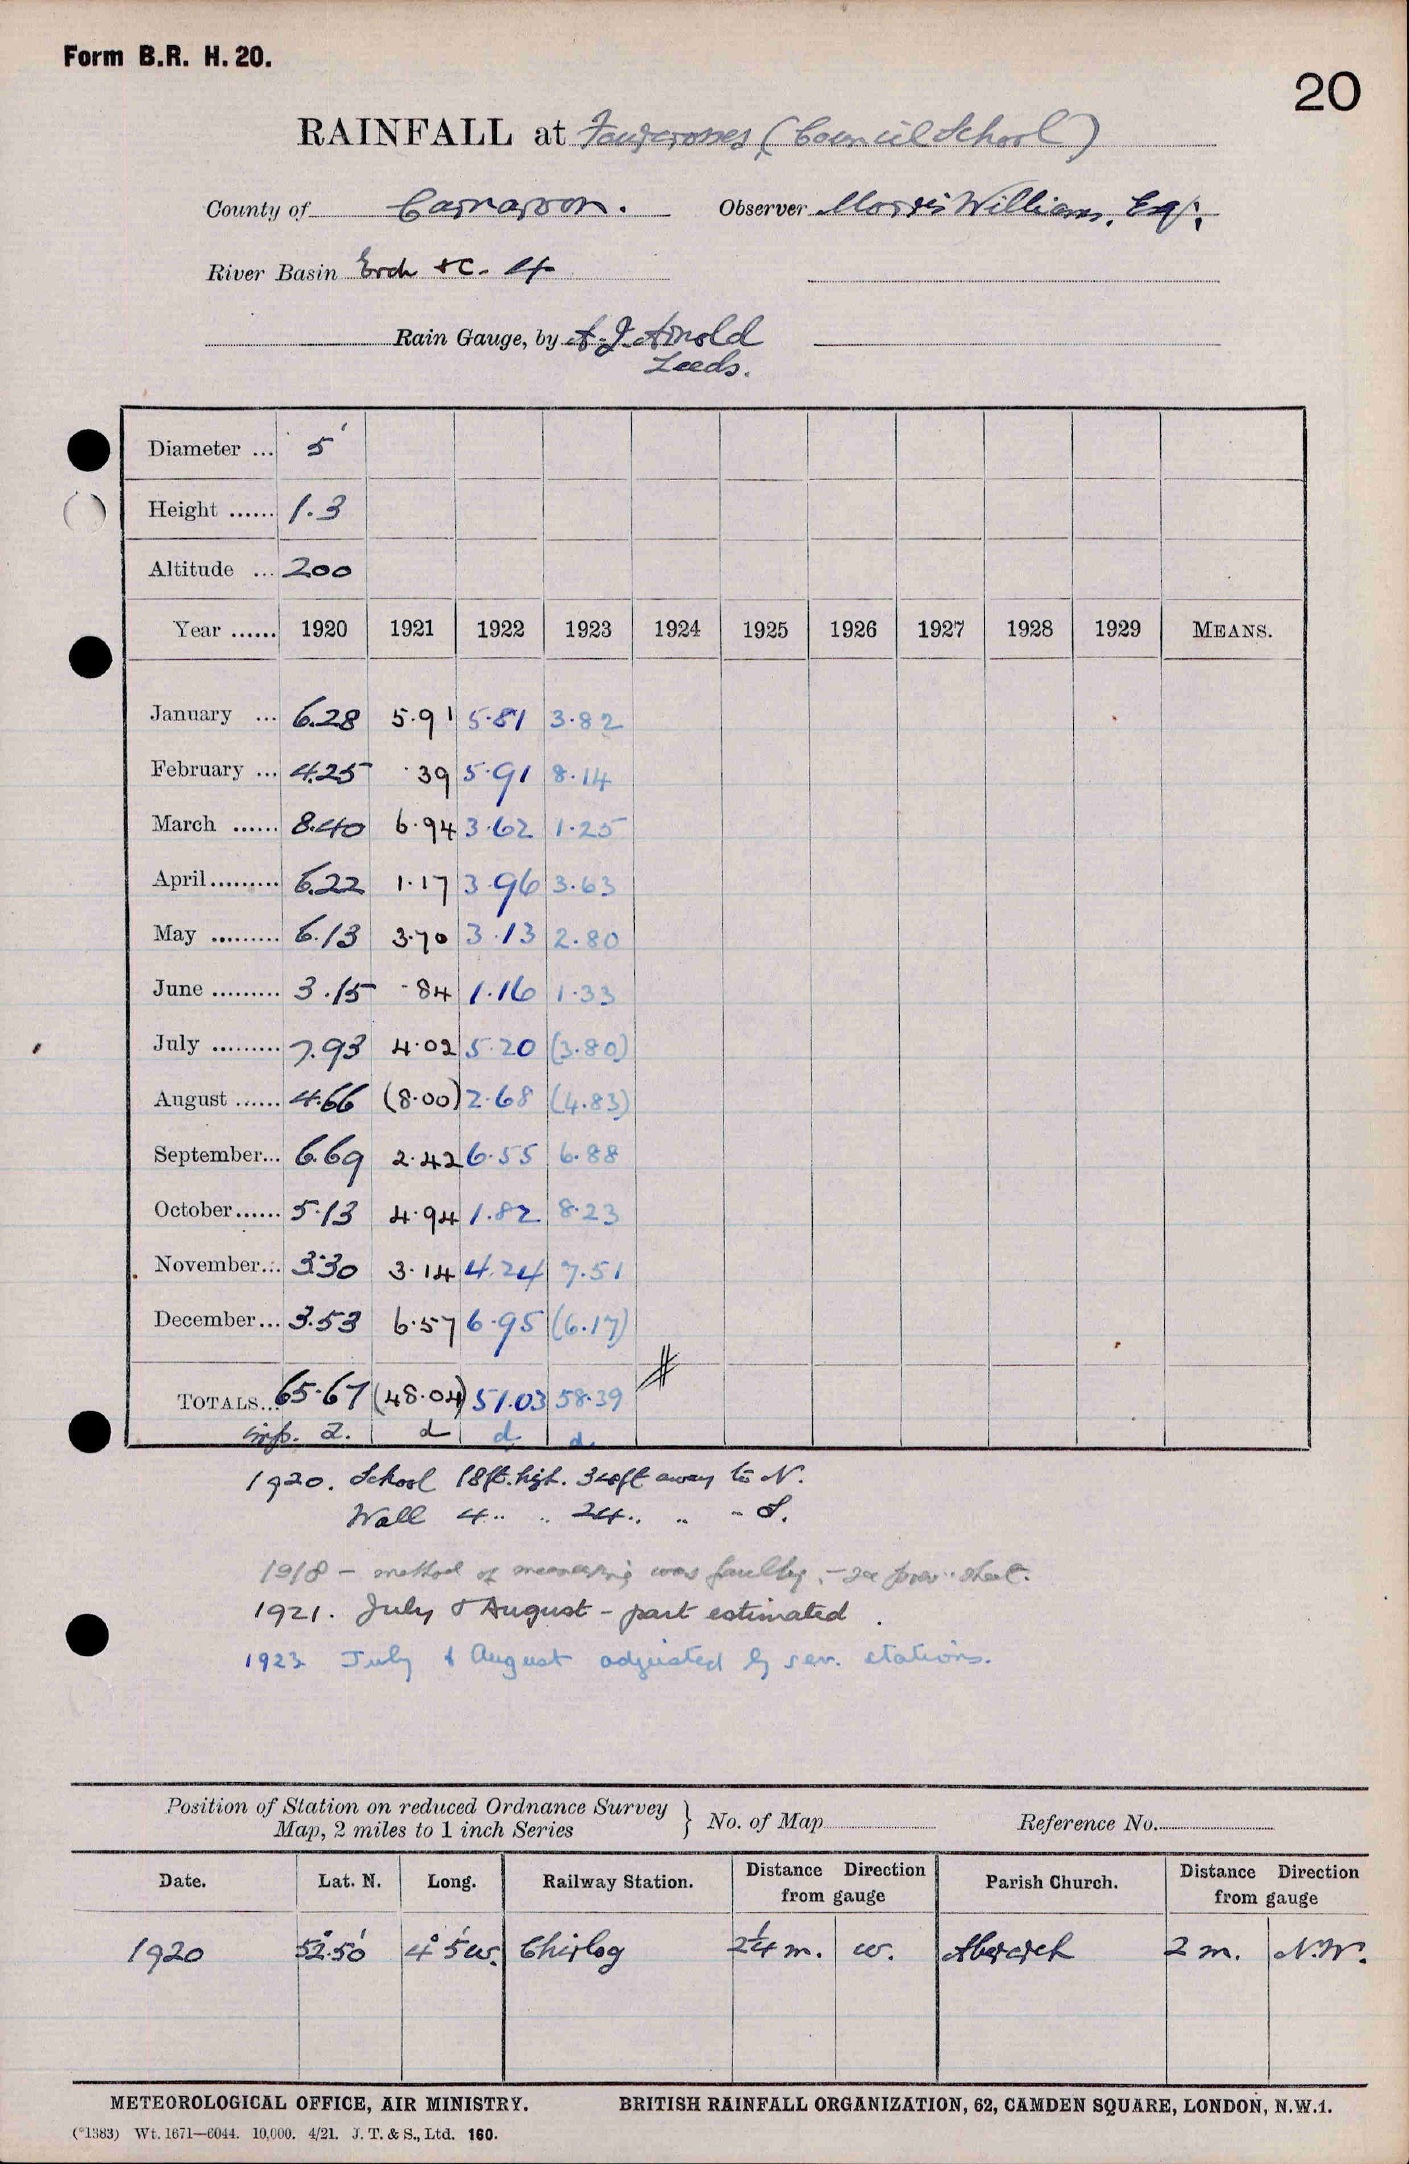 Form B.R. H. 20.
20
RAINFALL at Fourcrosses (Council School)
County of Carnarvon. Observer Morris Williams, Esq.,
River Basin Erch &c. 4
Rain Gauge, by A. J. Arnold
Leeds.
Diameter ... 5"
Height ...... 1.3
Altitude ... 200
Year ...... 1920 1921 1922 1923 1924 1925 1926 1927 1928 1929 MEANS.
January ... 6.28 5.91 5.81 3.82
February ... 4.25 .39 5.91 8.14
March ...... 8.40 6.94 3.62 1.25
April......... 6.22 1.17 3.96 3.63
May ......... 6.13 3.70 3.13 2.80
June ......... 3.15 .84 1.16 1.33
July ......... 7.93 4.02 5.20 (3.80)
August ...... 4.66 (8.00) 2.68 (4.83)
September... 6.69 2.42 6.55 6.88
October...... 5.13 4.94 1.82 8.23
November... 3.30 3.14 4.24 7.51
December... 3.53 6.57 6.95 (6.17)
TOTALS... 65.67 (48.04) 51.03 58.39
d d d
1920. School 18ft. high. 34oft away to N.
Wall 4 " " 24 " " " S.
1918 - method of measuring was faulty, - see prev. sheet.
1921. July & August - part estimated.
1923 July & August adjusted by sev. stations.
Position of Station on reduced Ordnance Survey Map, 2 miles to 1 inch Series } No. of Map Reference No.
Date. Lat. N. Long. Railway Station. Distance Direction from gauge Parish Church. Distance Direction from gauge
1920 52° 50' 4° 5' W. Chirlog 2¼ m. W. Abererch 2 m. N.W.
METEOROLOGICAL OFFICE, AIR MINISTRY. BRITISH RAINFALL ORGANIZATION, 62, CAMDEN SQUARE, LONDON, N.W.1.
(*1383) Wt. 1671—6044. 10,000. 4/21. J. T. & S., Ltd. 160.